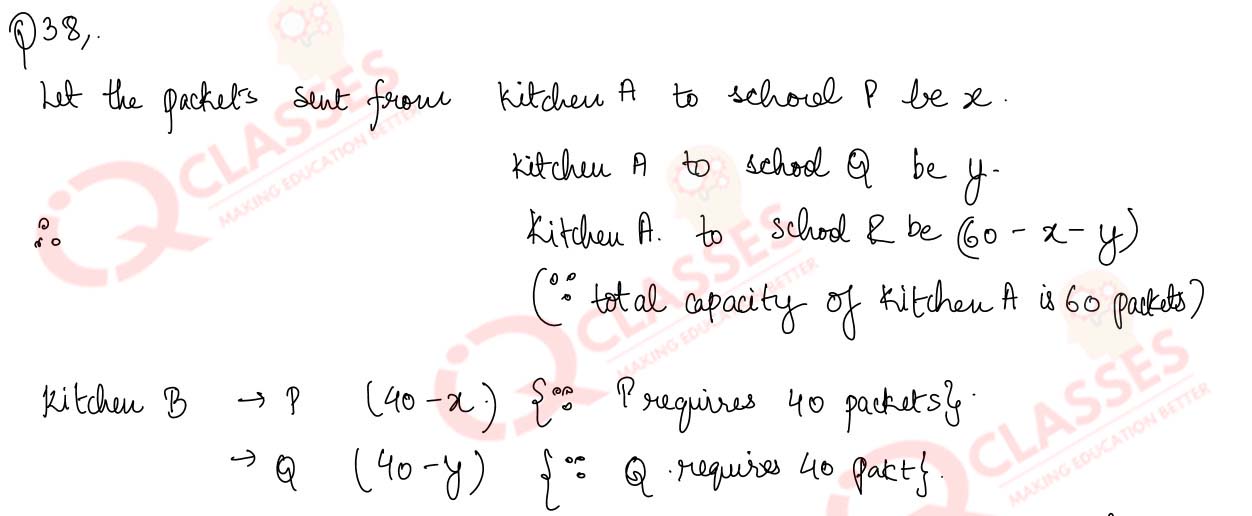 Q38,.
Let the packets sent from kitchen A to school P be x.
kitchen A to school Q be y.
∴ Kitchen A. to school R be (60 - x - y)
(∵ total capacity of kitchen A is 60 packets)
Kitchen B → P (40 - x) {∵ P requires 40 packets}.
→ Q (40 - y) {∵ Q requires 40 pakt}.
IQ CLASSES
MAKING EDUCATION BETTER
IQ CLASSES
MAKING EDUCATION BETTER
IQ CLASSES
MAKING EDUCATION BETTER